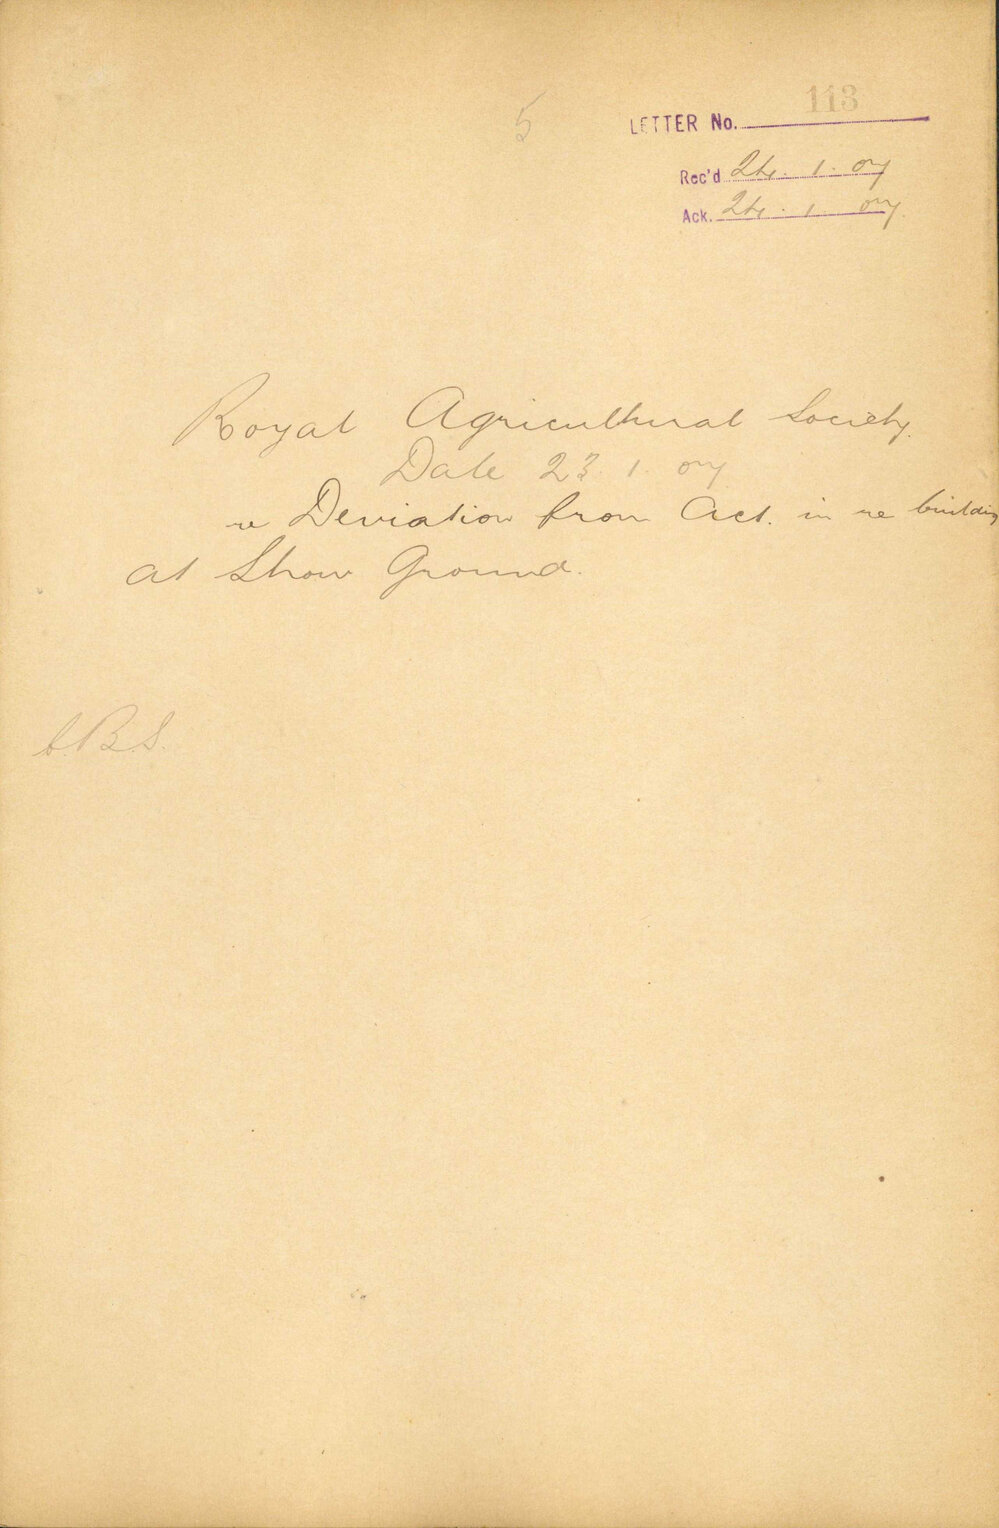 5
LETTER No. 113
Rec'd 24. 1. 07
Ack. 24. 1 07.
Royal Agricultural Society.
Date 23. 1. 07
re Deviation from Act. in re building
at Show Ground.
C.B.S.